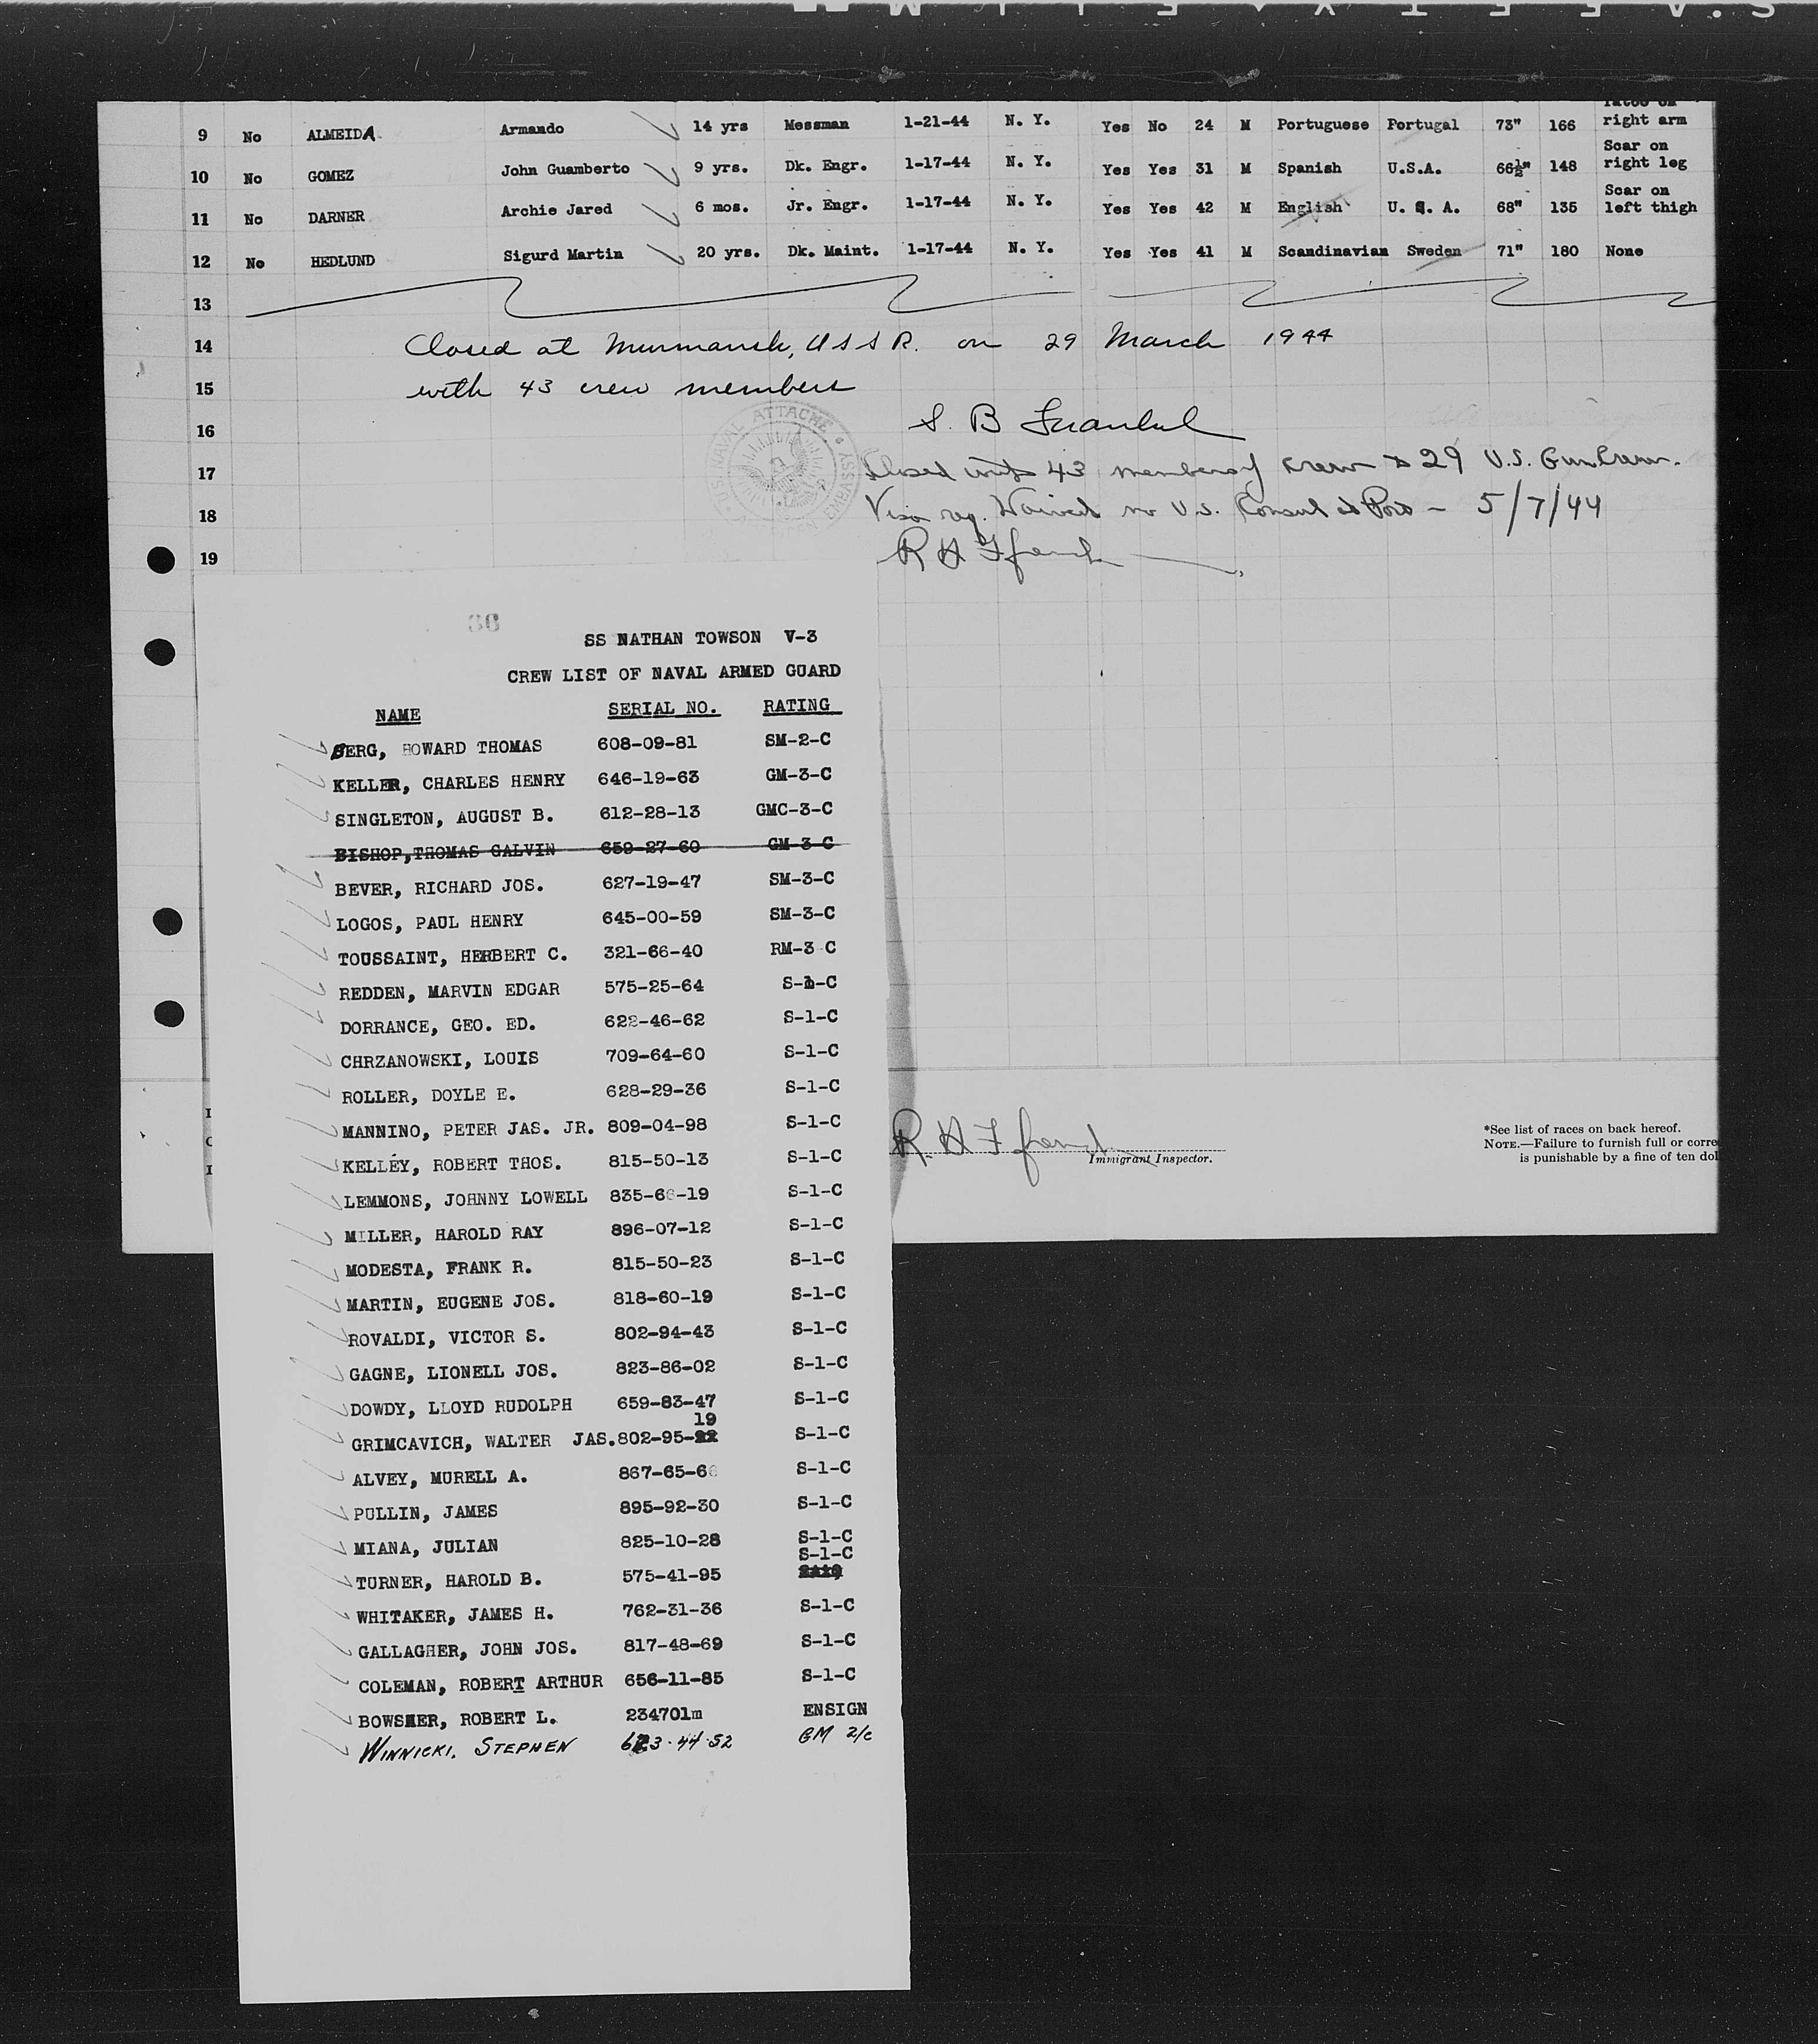 SAFETY FILM
Tatoo on
9 No ALMEIDA Armando 14 yrs Messman 1-21-44 N. Y. Yes No 24 M Portuguese Portugal 73" 166 right arm
Scar on
10 No GOMEZ John Guamberto 9 yrs. Dk. Engr. 1-17-44 N. Y. Yes Yes 31 M Spanish U.S.A. 66½" 148 right leg
Scar on
11 No DARNER Archie Jared 6 mos. Jr. Engr. 1-17-44 N. Y. Yes Yes 42 M English U. S. A. 68" 135 left thigh
12 No HEDLUND Sigurd Martin 20 yrs. Dk. Maint. 1-17-44 N. Y. Yes Yes 41 M Scandinavian Sweden 71" 180 None
13
14 Closed at Murmansk, USSR. on 29 March 1944
15 with 43 crew members
16 S. B. Frankel
17 Closed with 43 members of crew & 29 U.S. Gun Crew.
18 Visa req. Waived no U.S. Consul at Port - 5/7/44
19 R H
U.S. NAVAL ATTACHE
36
SS NATHAN TOWSON V-3
CREW LIST OF NAVAL ARMED GUARD
NAME SERIAL NO. RATING
BERG, HOWARD THOMAS 608-09-81 SM-2-C
KELLER, CHARLES HENRY 646-19-63 GM-3-C
SINGLETON, AUGUST B. 612-28-13 GMC-3-C
BISHOP, THOMAS GALVIN 659-27-60 GM-3-C
BEVER, RICHARD JOS. 627-19-47 SM-3-C
LOGOS, PAUL HENRY 645-00-59 SM-3-C
TOUSSAINT, HERBERT C. 321-66-40 RM-3 C
REDDEN, MARVIN EDGAR 575-25-64 S-1-C
DORRANCE, GEO. ED. 622-46-62 S-1-C
CHRZANOWSKI, LOUIS 709-64-60 S-1-C
ROLLER, DOYLE E. 628-29-36 S-1-C
MANNINO, PETER JAS. JR. 809-04-98 S-1-C
KELLEY, ROBERT THOS. 815-50-13 S-1-C
LEMMONS, JOHNNY LOWELL 835-66-19 S-1-C
MILLER, HAROLD RAY 896-07-12 S-1-C
MODESTA, FRANK R. 815-50-23 S-1-C
MARTIN, EUGENE JOS. 818-60-19 S-1-C
ROVALDI, VICTOR S. 802-94-43 S-1-C
GAGNE, LIONELL JOS. 823-86-02 S-1-C
DOWDY, LLOYD RUDOLPH 659-83-47 S-1-C
19
GRIMCAVICH, WALTER JAS. 802-95-22 S-1-C
ALVEY, MURELL A. 867-65-66 S-1-C
PULLIN, JAMES 895-92-30 S-1-C
MIANA, JULIAN 825-10-28 S-1-C
S-1-C
TURNER, HAROLD B. 575-41-95
WHITAKER, JAMES H. 762-31-36 S-1-C
GALLAGHER, JOHN JOS. 817-48-69 S-1-C
COLEMAN, ROBERT ARTHUR 656-11-85 S-1-C
BOWSHER, ROBERT L. 234701m ENSIGN
WINNICKI, STEPHEN 623-44-52 GM 2/c
R. H.
Immigrant Inspector.
*See list of races on back hereof.
NOTE.—Failure to furnish full or corre
is punishable by a fine of ten dol